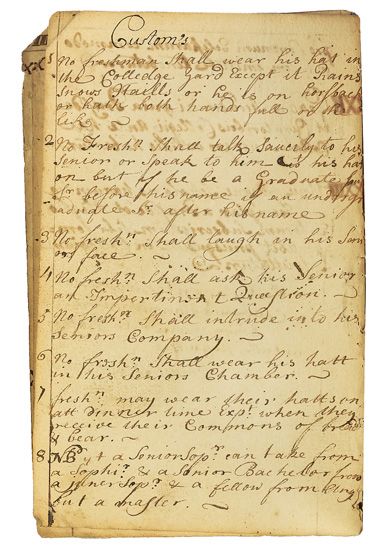 Customs
1 No freshman Shall wear his hat in
the Colledge yard Except it Rains
Snows Haills or he is on horsback
or hath both hands full or the
like
2 No Freshn Shall talk saucily to his
Senior or Speak to him his hat
on but if he be a Graduate
Sr before his name if an underg
aduate Sr after his name
3 No freshn Shall laugh in his Seni
ors face
4 No freshn Shall ask his Senior
an Impertinent Question.
5 No freshn Shall intrude into his
Seniors Company.
6 No freshn Shall wear his hatt
in his Seniors Chamber.
7 freshn may wear their hatts on
att dinner time Exp. when they
receive their Commons of bread
& bear.
8 NB yt a Senior Sopr can take from
a Sophr & a Senior Bachelor from
a Juner Sopr & a fellow from
but a master.